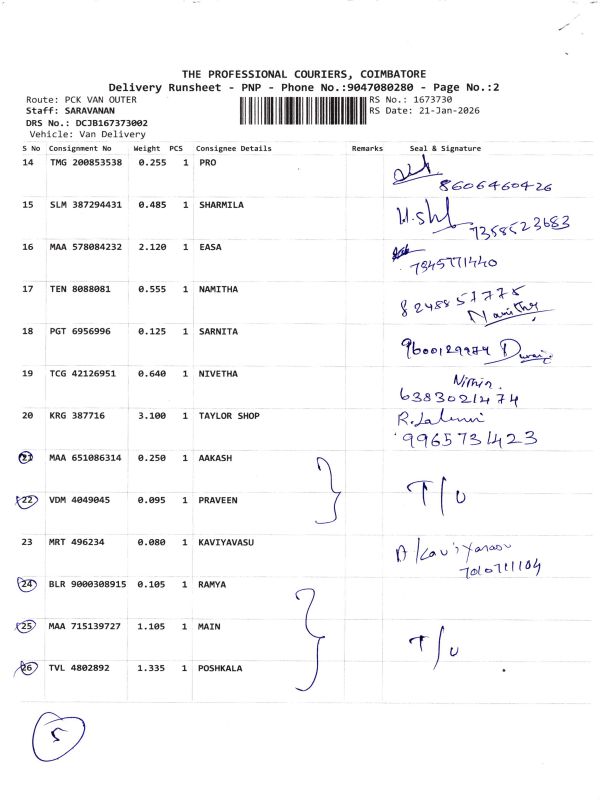 THE PROFESSIONAL COURIERS, COIMBATORE
Delivery Runsheet - PNP - Phone No.:9047080280 - Page No.:2
Route: PCK VAN OUTER RS No.: 1673730
Staff: SARAVANAN RS Date: 21-Jan-2026
DRS No.: DCJB167373002
Vehicle: Van Delivery
S No Consignment No Weight PCS Consignee Details Remarks Seal & Signature
14 TMG 200853538 0.255 1 PRO
8606460426
15 SLM 387294431 0.485 1 SHARMILA
7358523683
16 MAA 578084232 2.120 1 EASA
7845771440
17 TEN 8088081 0.555 1 NAMITHA 8248857775
Namitha
18 PGT 6956996 0.125 1 SARNITA
9600129974
19 TCG 42126951 0.640 1 NIVETHA Nithin
6383021474
20 KRG 387716 3.100 1 TAYLOR SHOP
9965731423
21 MAA 651086314 0.250 1 AAKASH
T/U
22 VDM 4049045 0.095 1 PRAVEEN
23 MRT 496234 0.080 1 KAVIYAVASU A Kaviyarasu
7010711104
24 BLR 9000308915 0.105 1 RAMYA
25 MAA 715139727 1.105 1 MAIN
T/U
26 TVL 4802892 1.335 1 POSHKALA
5